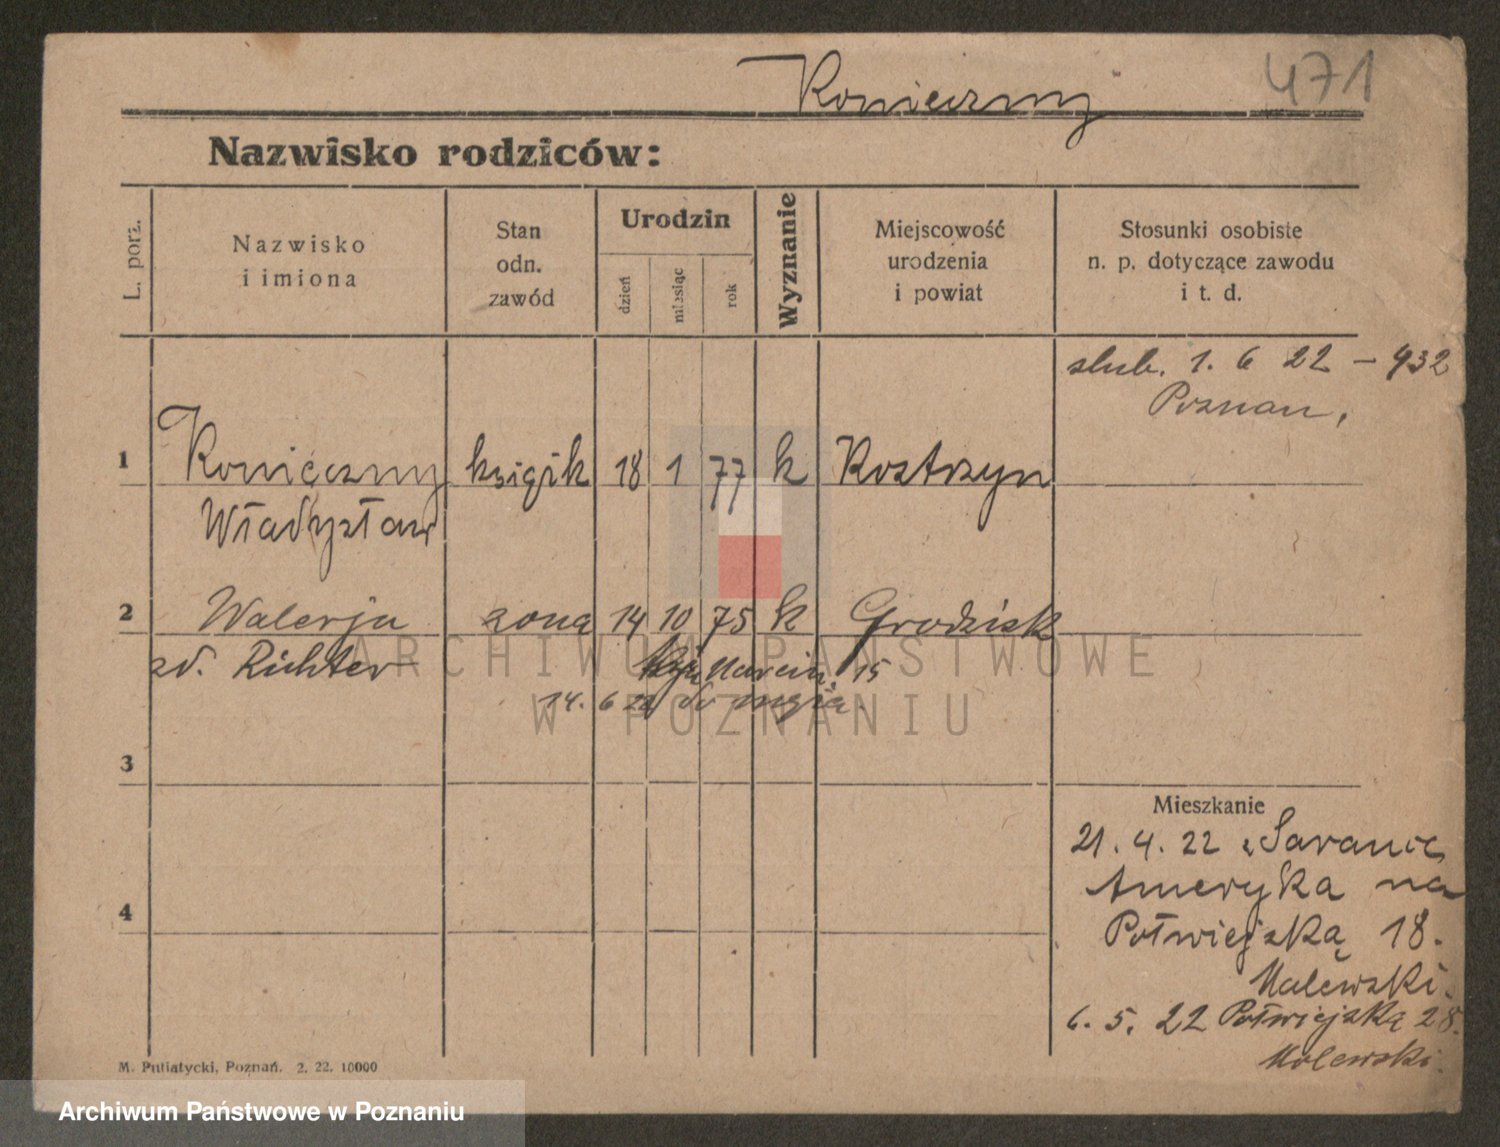 Konieczny
471
Nazwisko rodziców:
L. porz.
Nazwisko
i imiona
Stan
odn.
zawód
Urodzin
dzień
miesiąc
rok
Wyznanie
Miejscowość
urodzenia
i powiat
Stosunki osobiste
n. p. dotyczące zawodu
i t. d.
ślub. 1. 6 22 – 432
Poznan,
1 Konieczny 18 1 77 k Kostrzyn
Władysław
2 Walerja żona 14 10 75 k Grodzisk
zd. Richter Marcin 15
14. 6 22 do męża.
3
Mieszkanie
21. 4. 22 z
Ameryka na
4
Półwiejską 18.
Malewski.
6. 5. 22 Półwiejską 28.
Molewski.
M. Putiatycki, Poznań. 2. 22. 10000
ARCHIWUM PAŃSTWOWE
W POZNANIU
Archiwum Państwowe w Poznaniu